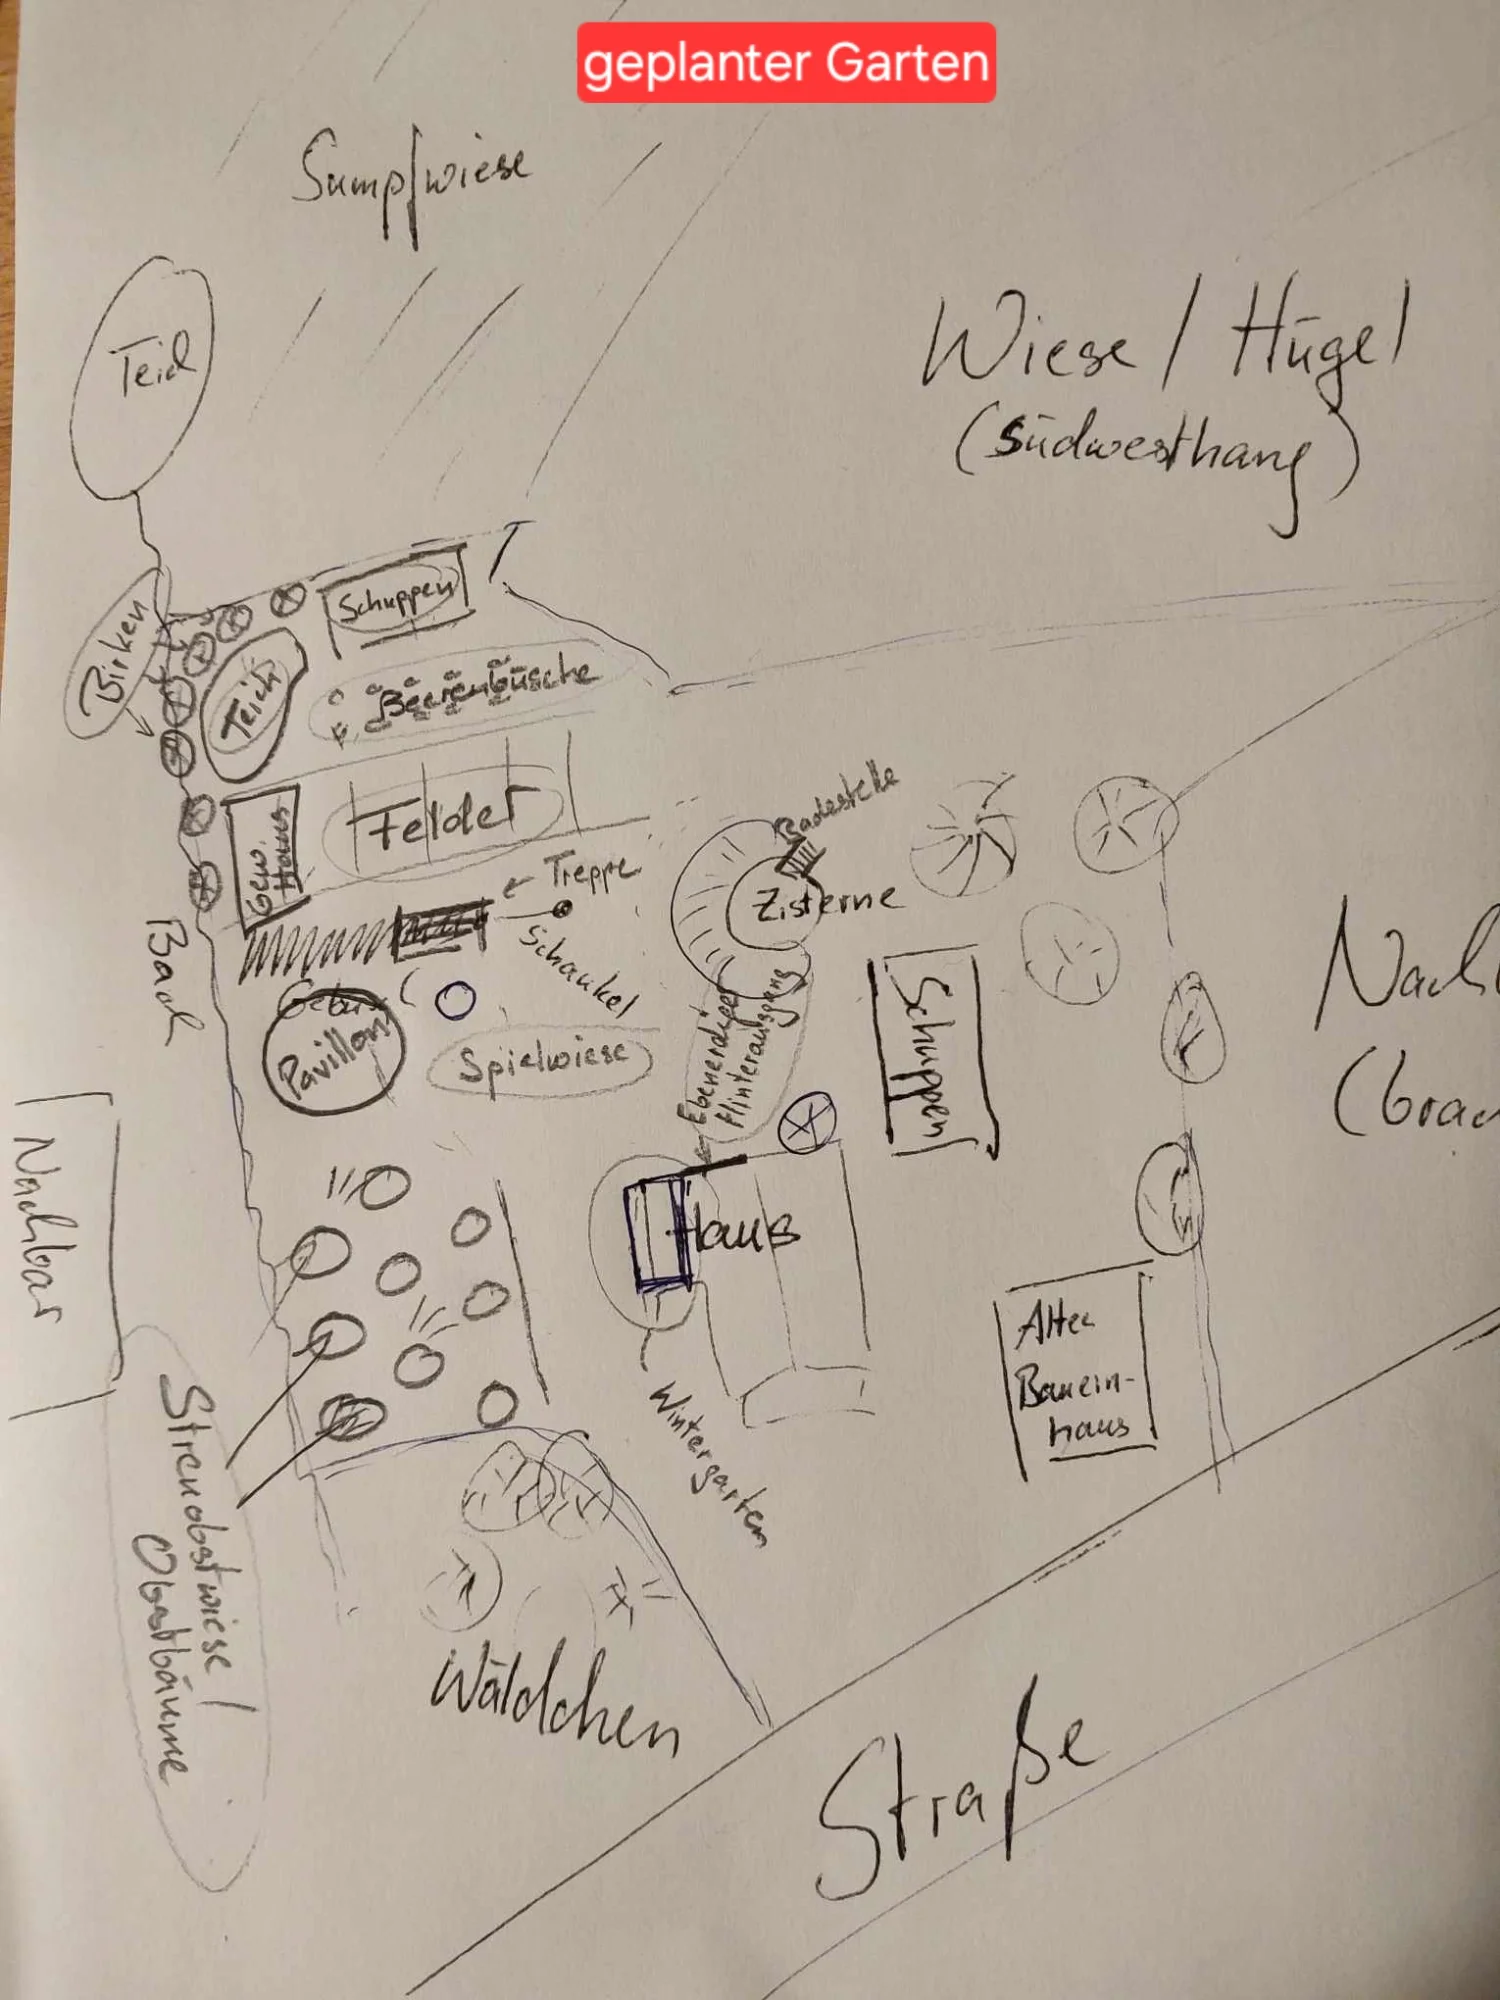 geplanter Garten
Sumpfwiese
Teich
Wiese / Hügel
(Südwesthang)
Schuppen
Birken
Teich
Beerenbüsche
Felder
Gew.
Haus
Badestelle
Treppe
Zisterne
Schaukel
Bach
Pavillon
Spielwiese
Ebenerdiger
Hinterausgang
Schuppen
Nachbar
Haus
Wintergarten
Altes
Bauern-
haus
Streuobstwiese /
Obstbäume
Wäldchen
Straße